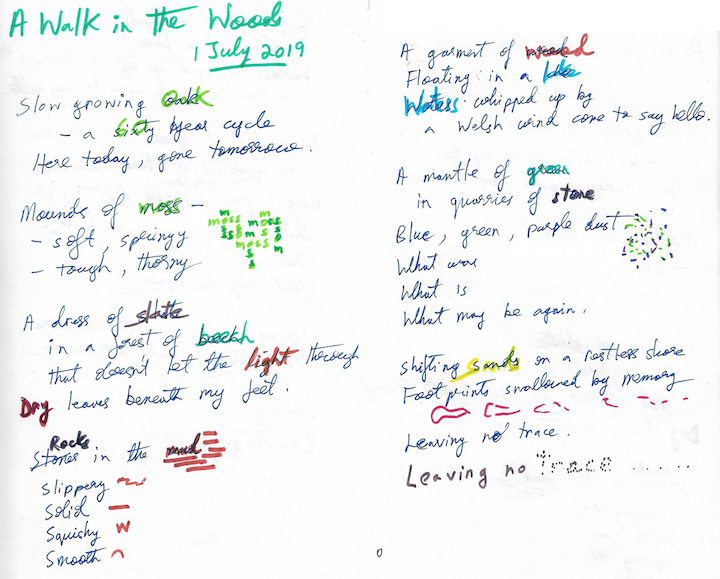 A Walk in the Woods
1 July 2019
Slow growing oak
- a sixty year cycle
Here today, gone tomorrow.
Mounds of moss -
- soft, springy
- tough, thorny
m m
moss moss
s s o m s
moss moss o
s m
s
A dress of slate
in a forest of beech
that doesn't let the light through
Dry leaves beneath my feet.
Rocks
Stones in the mud
Slippery
Solid
Squishy
Smooth
A garment of weed
Floating in a lake
Waters whipped up by
a Welsh wind come to say hello.
A mantle of green
in quarries of stone
Blue, green, purple dust
What was
What is
What may be again.
Shifting sands on a restless shore
Footprints swallowed by memory
Leaving no trace.
Leaving no Trace ......